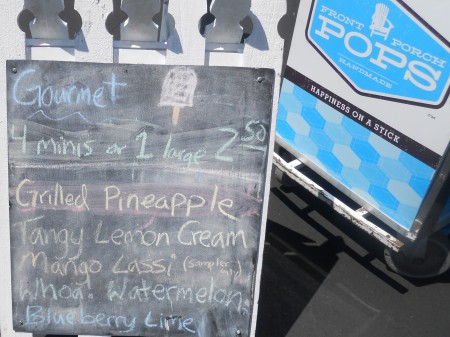 Gourmet
4 minis or 1 large 2.50
Grilled Pineapple
Tangy Lemon Cream
Mango Lassi (sampler only)
Whoa. Watermelon
Blueberry Lime
FRONT PORCH
POPS
HANDMADE
HAPPINESS ON A STICK